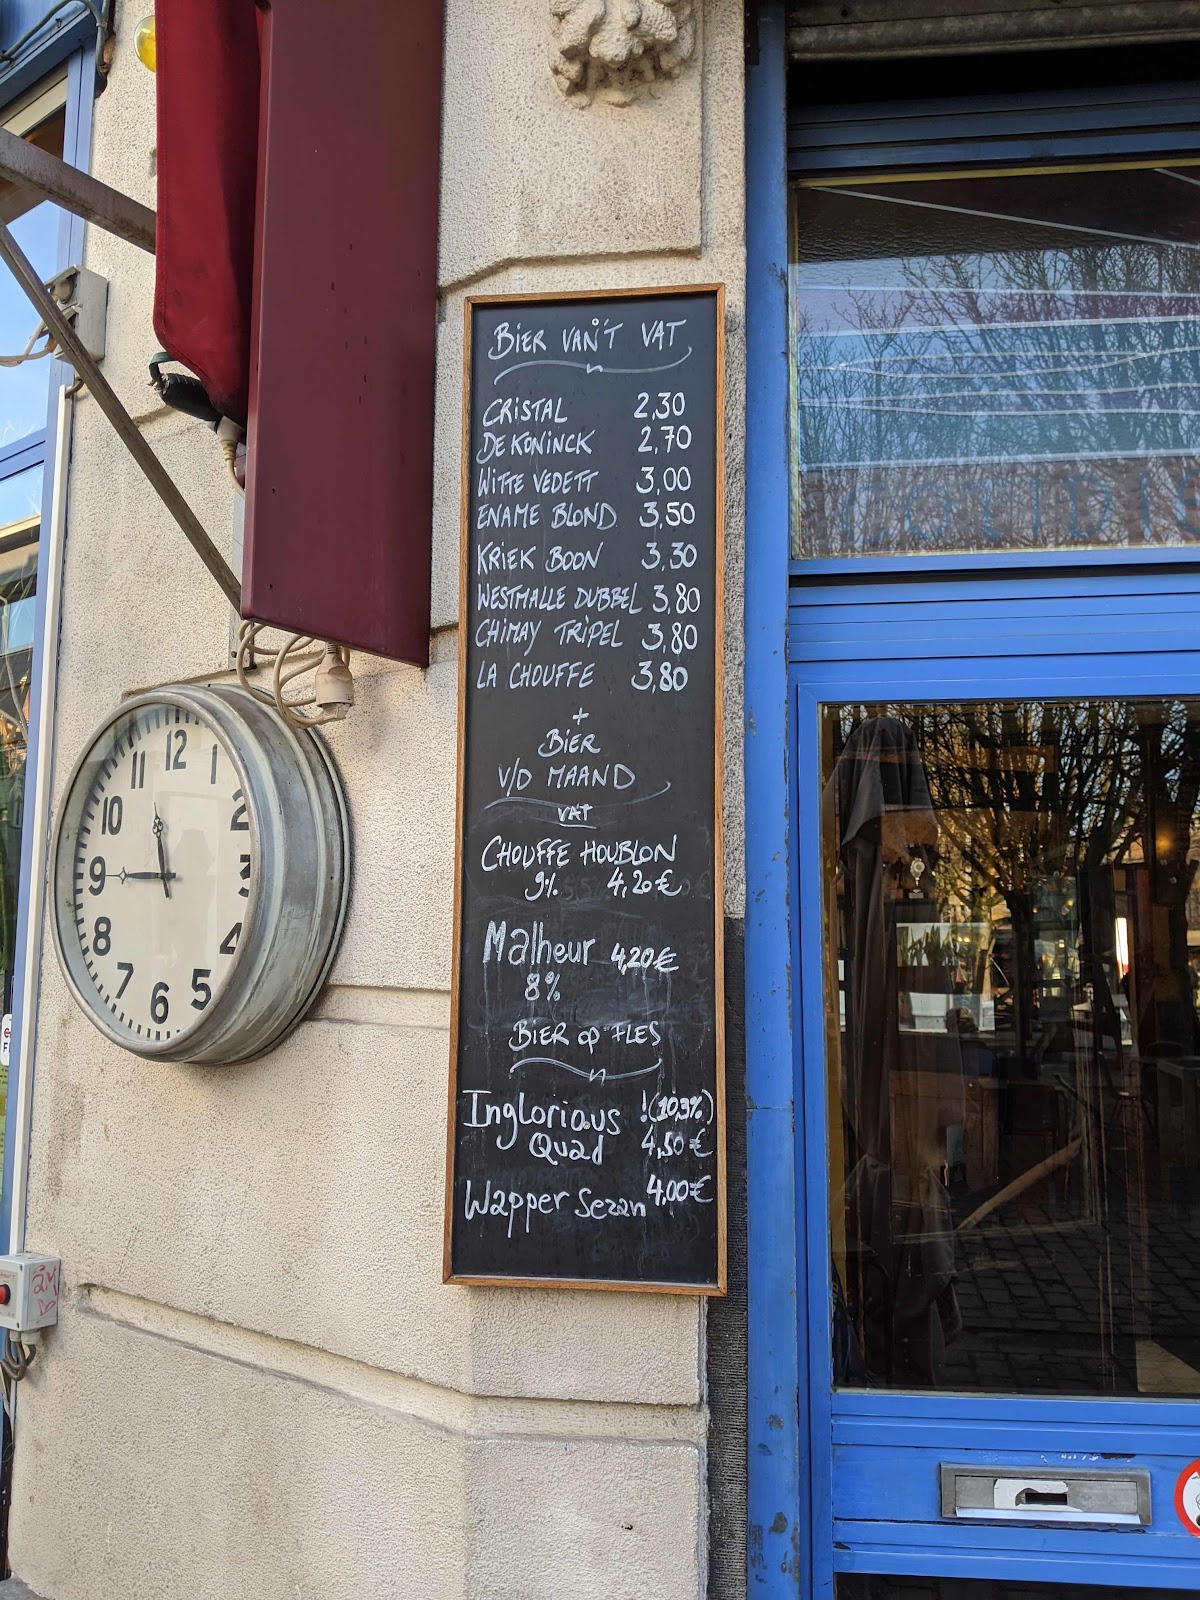 BIER VAN'T VAT
CRISTAL 2,30
DE KONINCK 2,70
WITTE VEDETT 3,00
ENAME BLOND 3,50
KRIEK BOON 3,30
WESTMALLE DUBBEL 3,80
CHIMAY TRIPEL 3,80
LA CHOUFFE 3,80
+
BIER
V/D MAAND
VAT
CHOUFFE HOUBLON
9% 4,20€
Malheur 4,20€
8%
BIER OP FLES
Inglorious !(10,9%)
Quad 4,50€
Wapper Sezan 4,00€
12
1
2
3
4
5
6
7
8
9
10
11